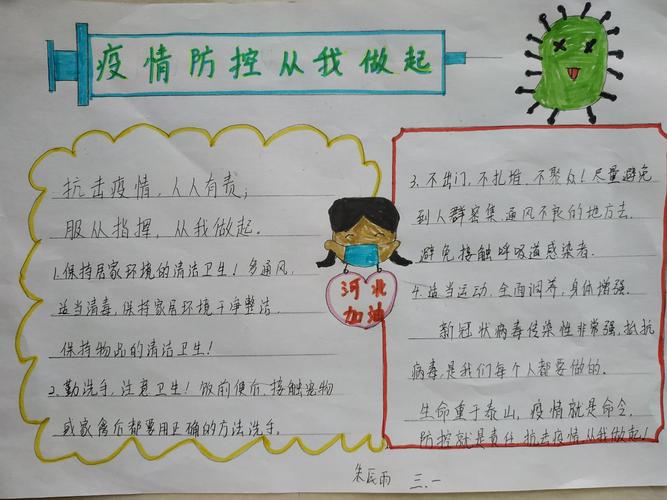 疫情防控从我做起
抗击疫情，人人有责；
服从指挥，从我做起。
1.保持居家环境的清洁卫生！多通风，
适当消毒，保持家居环境干净整洁。
保持物品的清洁卫生！
2.勤洗手，注意卫生！饭前便后，接触宠物
或家禽后都要用正确的方法洗手。
河北
加油
3.不出门，不扎堆，不聚众！尽量避免
到人群密集通风不良的地方去。
避免接触呼吸道感染者。
4.适当运动，全面调养，身体增强。
新冠状病毒传染性非常强，抵抗
病毒，是我们每个人都要做的。
生命重于泰山，疫情就是命令，
防控就是责任，抗击疫情，从我做起！
朱辰雨 三.一